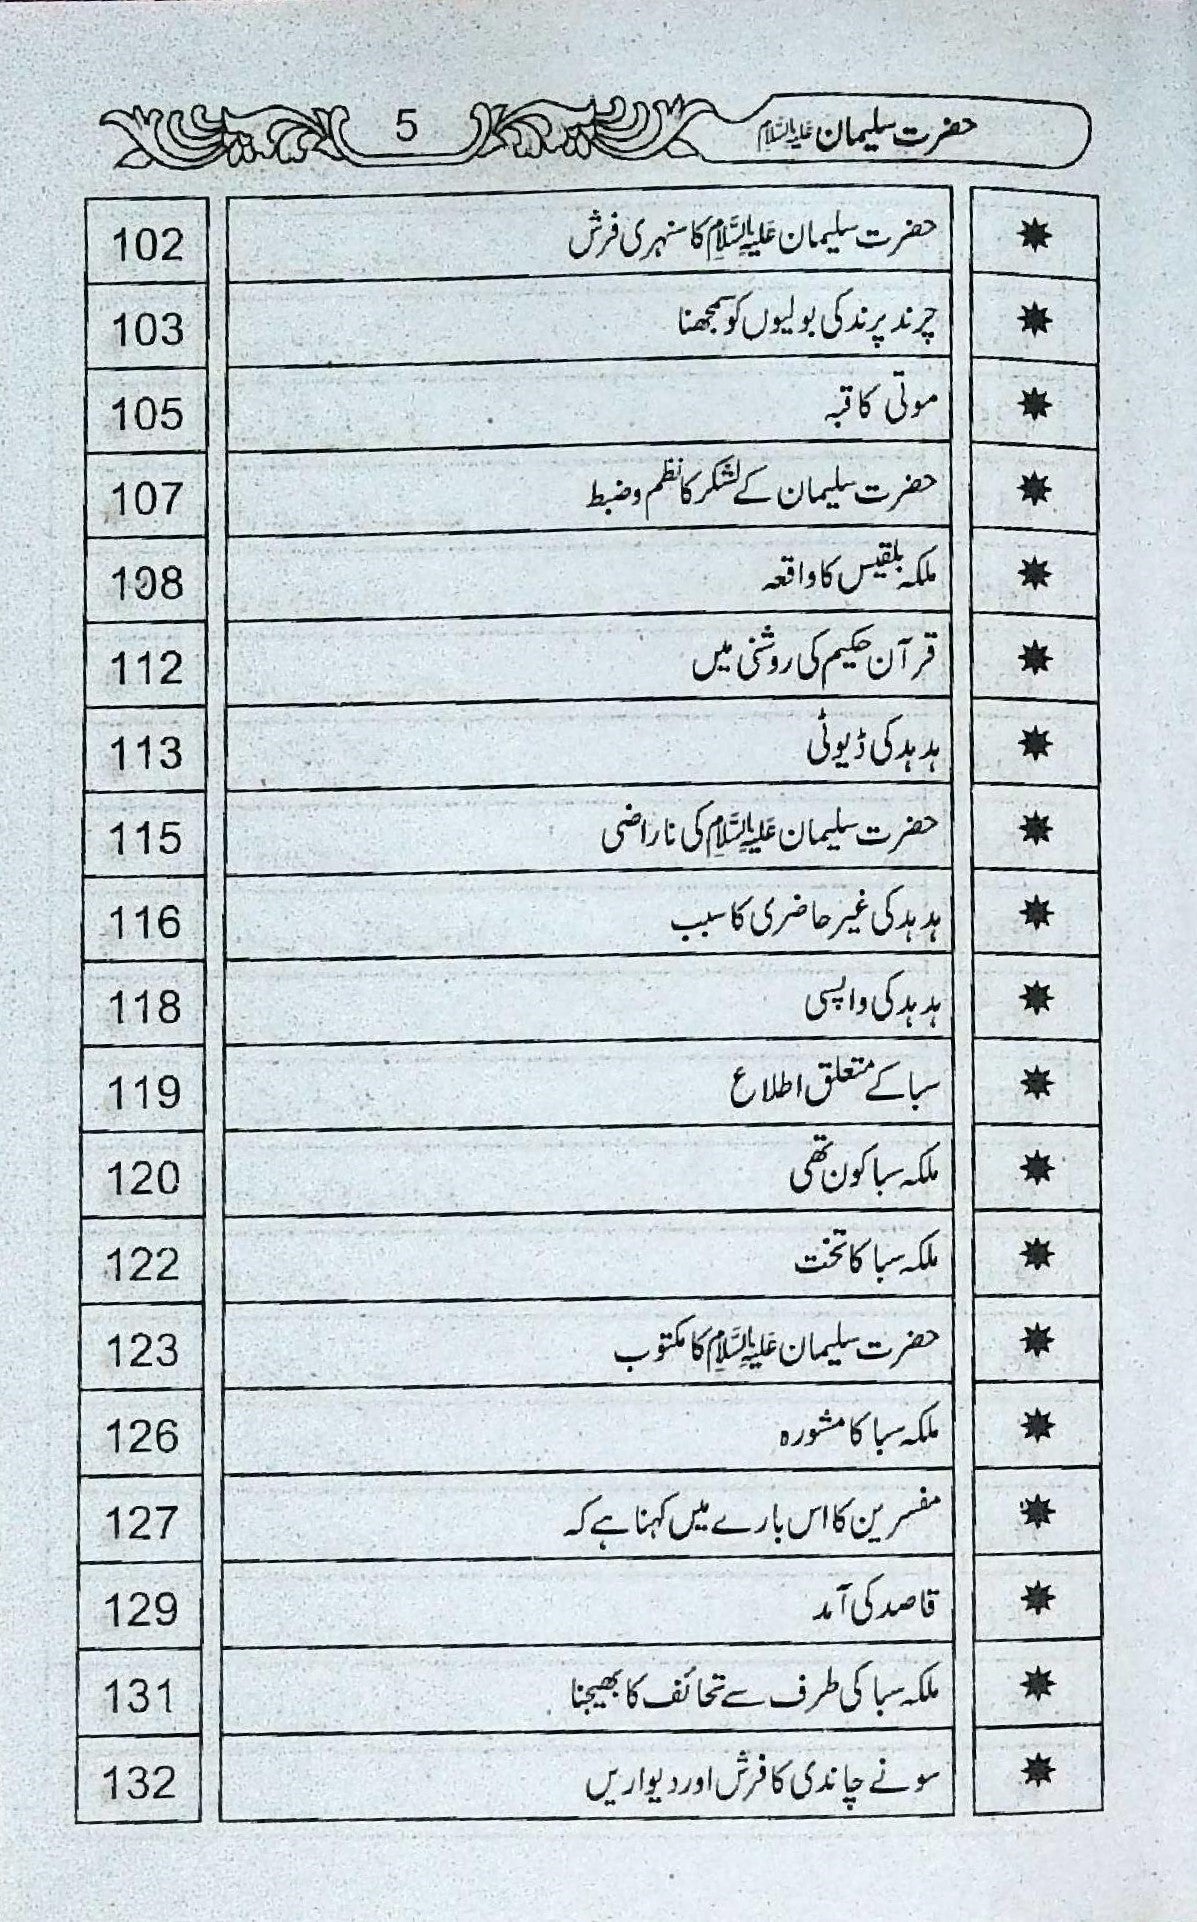 حضرت سلیمان علیہ السلام 5
حضرت سلیمان عَلَیْہِ السَّلَام کا سنہری فرش 102
چرند پرند کی بولیوں کو سمجھنا 103
موتی کا قبہ 105
حضرت سلیمان کے لشکر کا نظم و ضبط 107
ملکہ بلقیس کا واقعہ 108
قرآن حکیم کی روشنی میں 112
ہدہد کی ڈیوٹی 113
حضرت سلیمان عَلَیْہِ السَّلَام کی ناراضی 115
ہدہد کی غیر حاضری کا سبب 116
ہدہد کی واپسی 118
سبا کے متعلق اطلاع 119
ملکہ سبا کون تھی 120
ملکہ سبا کا تخت 122
حضرت سلیمان عَلَیْہِ السَّلَام کا مکتوب 123
ملکہ سبا کا مشورہ 126
مفسرین کا اس بارے میں کہنا ہے کہ 127
قاصد کی آمد 129
ملکہ سبا کی طرف سے تحائف کا بھیجنا 131
سونے چاندی کا فرش اور دیواریں 132